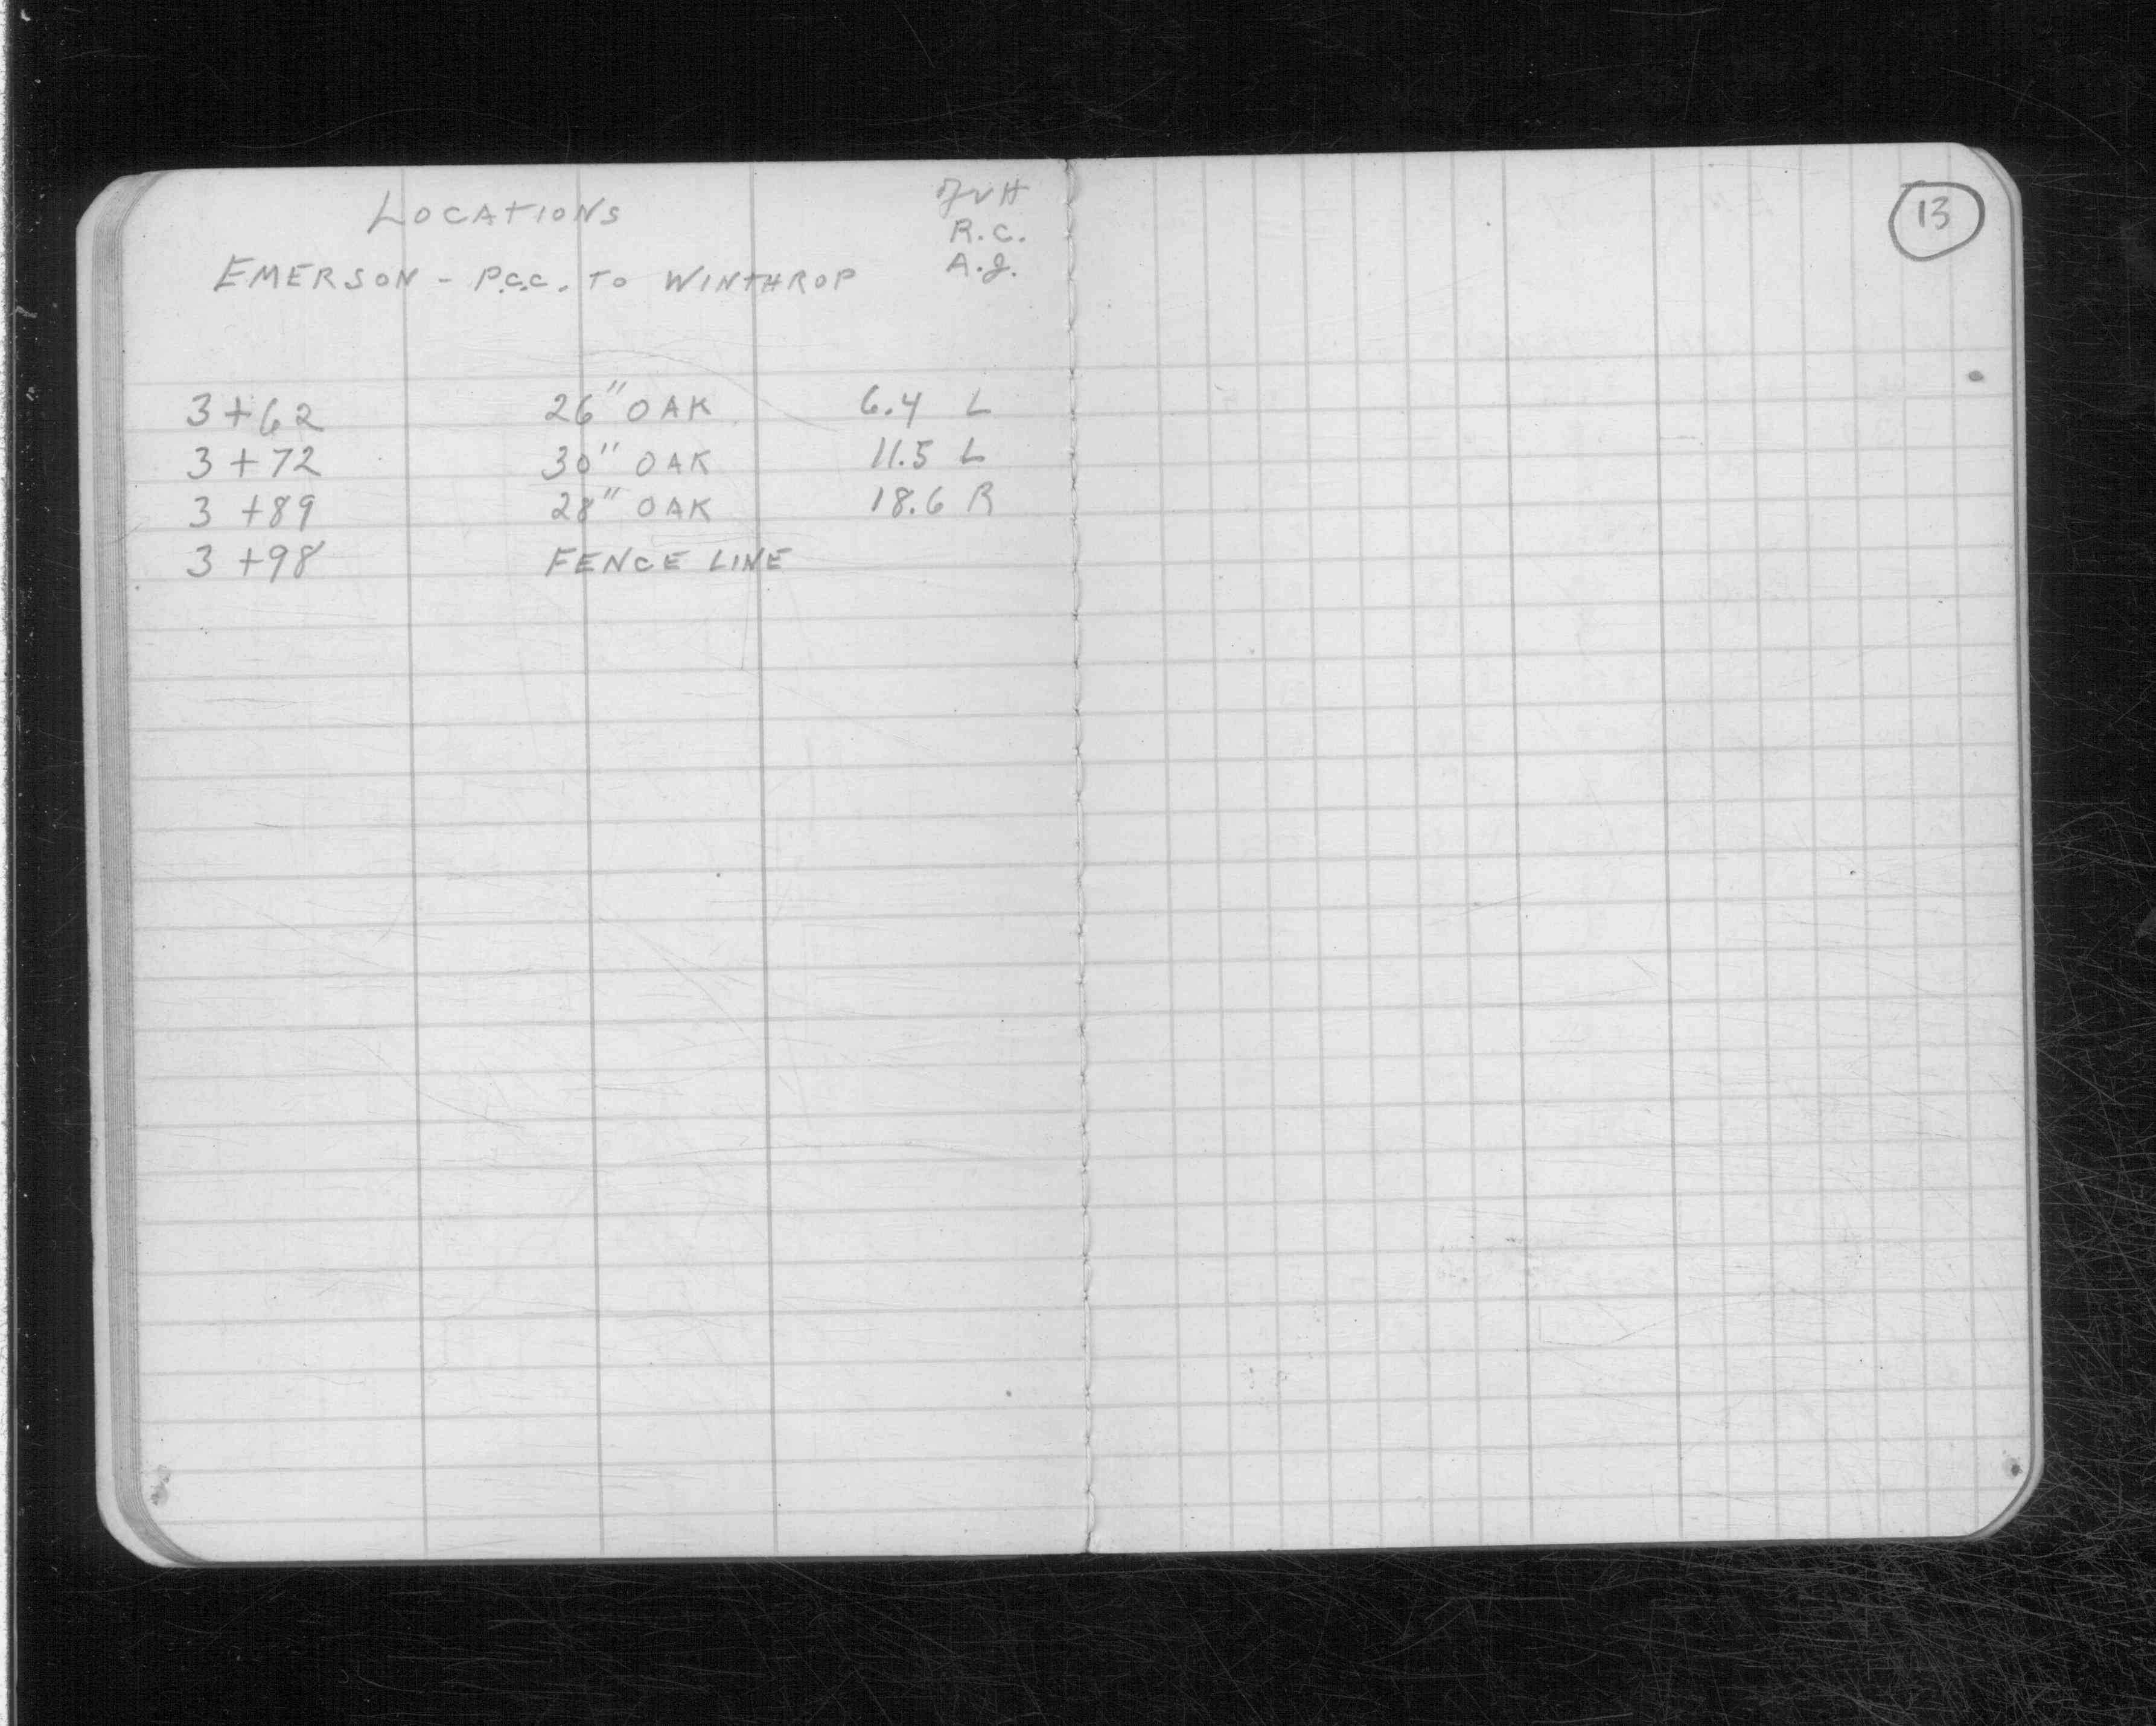 LOCATIONS
EMERSON - P.C.C. TO WINTHROP
R.C.
A.J.
13
3+62 26" OAK 6.4 L
3+72 30" OAK 11.5 L
3+89 28" OAK 18.6 R
3+98 FENCE LINE